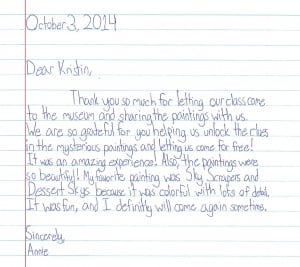 October 3, 2014
Dear Kristin,
Thank you so much for letting our class come
to the museum and sharing the paintings with us.
We are so grateful for you helping us unlock the clues
in the mysterious paintings and letting us come for free!
It was an amazing experience! Also, the paintings were
so beautiful! My favorite painting was Sky Scrapers and
Dessert Skys because it was colorful with lots of detail.
It was fun, and I definitly will come again sometime.
Sincerely,
Annie